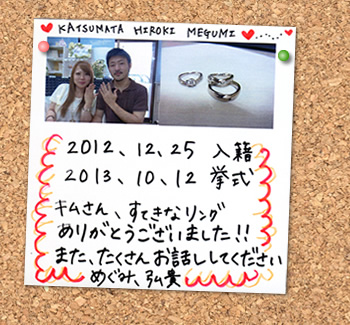 KATSUMATA HIROKI MEGUMI
2012、12、25 入籍
2013、10、12 挙式
キムさん、すてきなリング
ありがとうございました!!
また、たくさんお話ししてください
めぐみ、弘貴